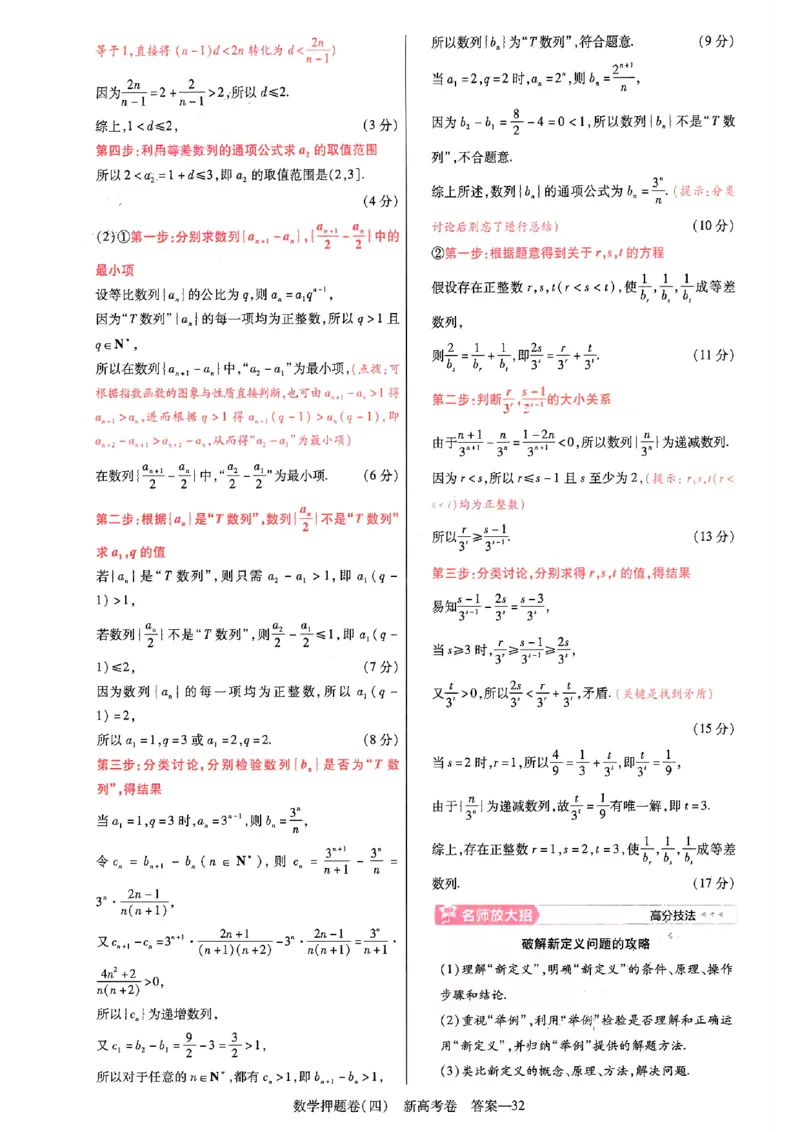 等于1,直接将 (n-1)d<2n 转化为 d<\frac{2n}{n-1})
因为\frac{2n}{n-1}=2+\frac{2}{n-1}>2,所以 d≤2.
综上,1<d≤2, (3分)
第四步:利用等差数列的通项公式求 a_2 的取值范围
所以 2<a_2=1+d≤3,即 a_2 的取值范围是(2,3].
(4分)
(2)①第一步:分别求数列{a_{n+1}-a_n},{\frac{a_{n+1}}{2}-\frac{a_n}{2}}中的
最小项
设等比数列{a_n}的公比为 q,则 a_n=a_1q^{n-1},
因为“T数列”{a_n}的每一项均为正整数,所以 q>1 且
q∈N^*,
所以在数列{a_{n+1}-a_n}中,“a_2-a_1”为最小项,(点拨:可
根据指数函数的图象与性质直接判断,也可由 a_{n+1}-a_n>1得
a_{n+1}>a_n,进而根据 q>1 得 a_{n+1}(q-1)>a_n(q-1),即
a_{n+2}-a_{n+1}>a_{n+1}-a_n,从而得“a_2-a_1”为最小项)
在数列{\frac{a_{n+1}}{2}-\frac{a_n}{2}}中,“\frac{a_2}{2}-\frac{a_1}{2}”为最小项. (6分)
第二步:根据{a_n}是“T数列”,数列{\frac{a_n}{2}}不是“T数列”
求 a_1,q 的值
若{a_n}是“T数列”,则只需 a_2-a_1>1,即 a_1(q-
1)>1,
若数列{\frac{a_n}{2}}不是“T数列”,则\frac{a_2}{2}-\frac{a_1}{2}≤1,即 a_1(q-
1)≤2, (7分)
因为数列{a_n}的每一项均为正整数,所以 a_1(q-
1)=2,
所以 a_1=1,q=3 或 a_1=2,q=2. (8分)
第三步:分类讨论,分别检验数列{b_n}是否为“T数
列”,得结果
当 a_1=1,q=3 时,a_n=3^{n-1},则 b_n=\frac{3^n}{n},
令 c_n=b_{n+1}-b_n(n∈N^*),则 c_n=\frac{3^{n+1}}{n+1}-\frac{3^n}{n}=
3^n·\frac{2n-1}{n(n+1)},
又 c_{n+1}-c_n=3^{n+1}·\frac{2n+1}{(n+1)(n+2)}-3^n·\frac{2n-1}{n(n+1)}=\frac{3^n}{n+1}·
\frac{4n^2+2}{n(n+2)}>0,
所以{c_n}为递增数列,
又 c_1=b_2-b_1=\frac{9}{2}-3=\frac{3}{2}>1,
所以对于任意的 n∈N^*,都有 c_n>1,即 b_{n+1}-b_n>1,
所以数列{b_n}为“T数列”,符合题意. (9分)
当 a_1=2,q=2 时,a_n=2^n,则 b_n=\frac{2^{n+1}}{n},
因为 b_2-b_1=\frac{8}{2}-4=0<1,所以数列{b_n}不是“T数
列”,不合题意.
综上所述,数列{b_n}的通项公式为 b_n=\frac{3^n}{n}.(提示:分类
讨论后别忘了进行总结) (10分)
②第一步:根据题意得到关于 r,s,t 的方程
假设存在正整数 r,s,t(r<s<t),使\frac{1}{b_r},\frac{1}{b_s},\frac{1}{b_t}成等差
数列,
则\frac{2}{b_s}=\frac{1}{b_r}+\frac{1}{b_t},即\frac{2s}{3^s}=\frac{r}{3^r}+\frac{t}{3^t}. (11分)
第二步:判断\frac{r}{3^r},\frac{s-1}{3^{s-1}}的大小关系
由于\frac{n+1}{3^{n+1}}-\frac{n}{3^n}=\frac{1-2n}{3^{n+1}}<0,所以数列{\frac{n}{3^n}}为递减数列.
因为 r<s,所以 r≤s-1 且 s 至少为2,(提示:r,s,t(r<
s<t)均为正整数)
所以\frac{r}{3^r}≥\frac{s-1}{3^{s-1}}. (13分)
第三步:分类讨论,分别求得 r,s,t 的值,得结果
易知\frac{s-1}{3^{s-1}}-\frac{2s}{3^s}=\frac{s-3}{3^s},
当 s≥3 时,\frac{r}{3^r}≥\frac{s-1}{3^{s-1}}≥\frac{2s}{3^s},
又\frac{t}{3^t}>0,所以\frac{2s}{3^s}<\frac{r}{3^r}+\frac{t}{3^t},矛盾.(关键是找到矛盾)
(15分)
当 s=2 时,r=1,所以\frac{4}{9}=\frac{1}{3}+\frac{t}{3^t},即\frac{t}{3^t}=\frac{1}{9},
由于{\frac{n}{3^n}}为递减数列,故\frac{t}{3^t}=\frac{1}{9}有唯一解,即 t=3.
综上,存在正整数 r=1,s=2,t=3,使\frac{1}{b_r},\frac{1}{b_s},\frac{1}{b_t}成等差
数列. (17分)
名师放大招 高分技法
破解新定义问题的攻略
(1)理解“新定义”,明确“新定义”的条件、原理、操作
步骤和结论.
(2)重视“举例”,利用“举例”检验是否理解和正确运
用“新定义”,并归纳“举例”提供的解题方法.
(3)类比新定义的概念、原理、方法,解决问题.
数学押题卷(四) 新高考卷 答案—32